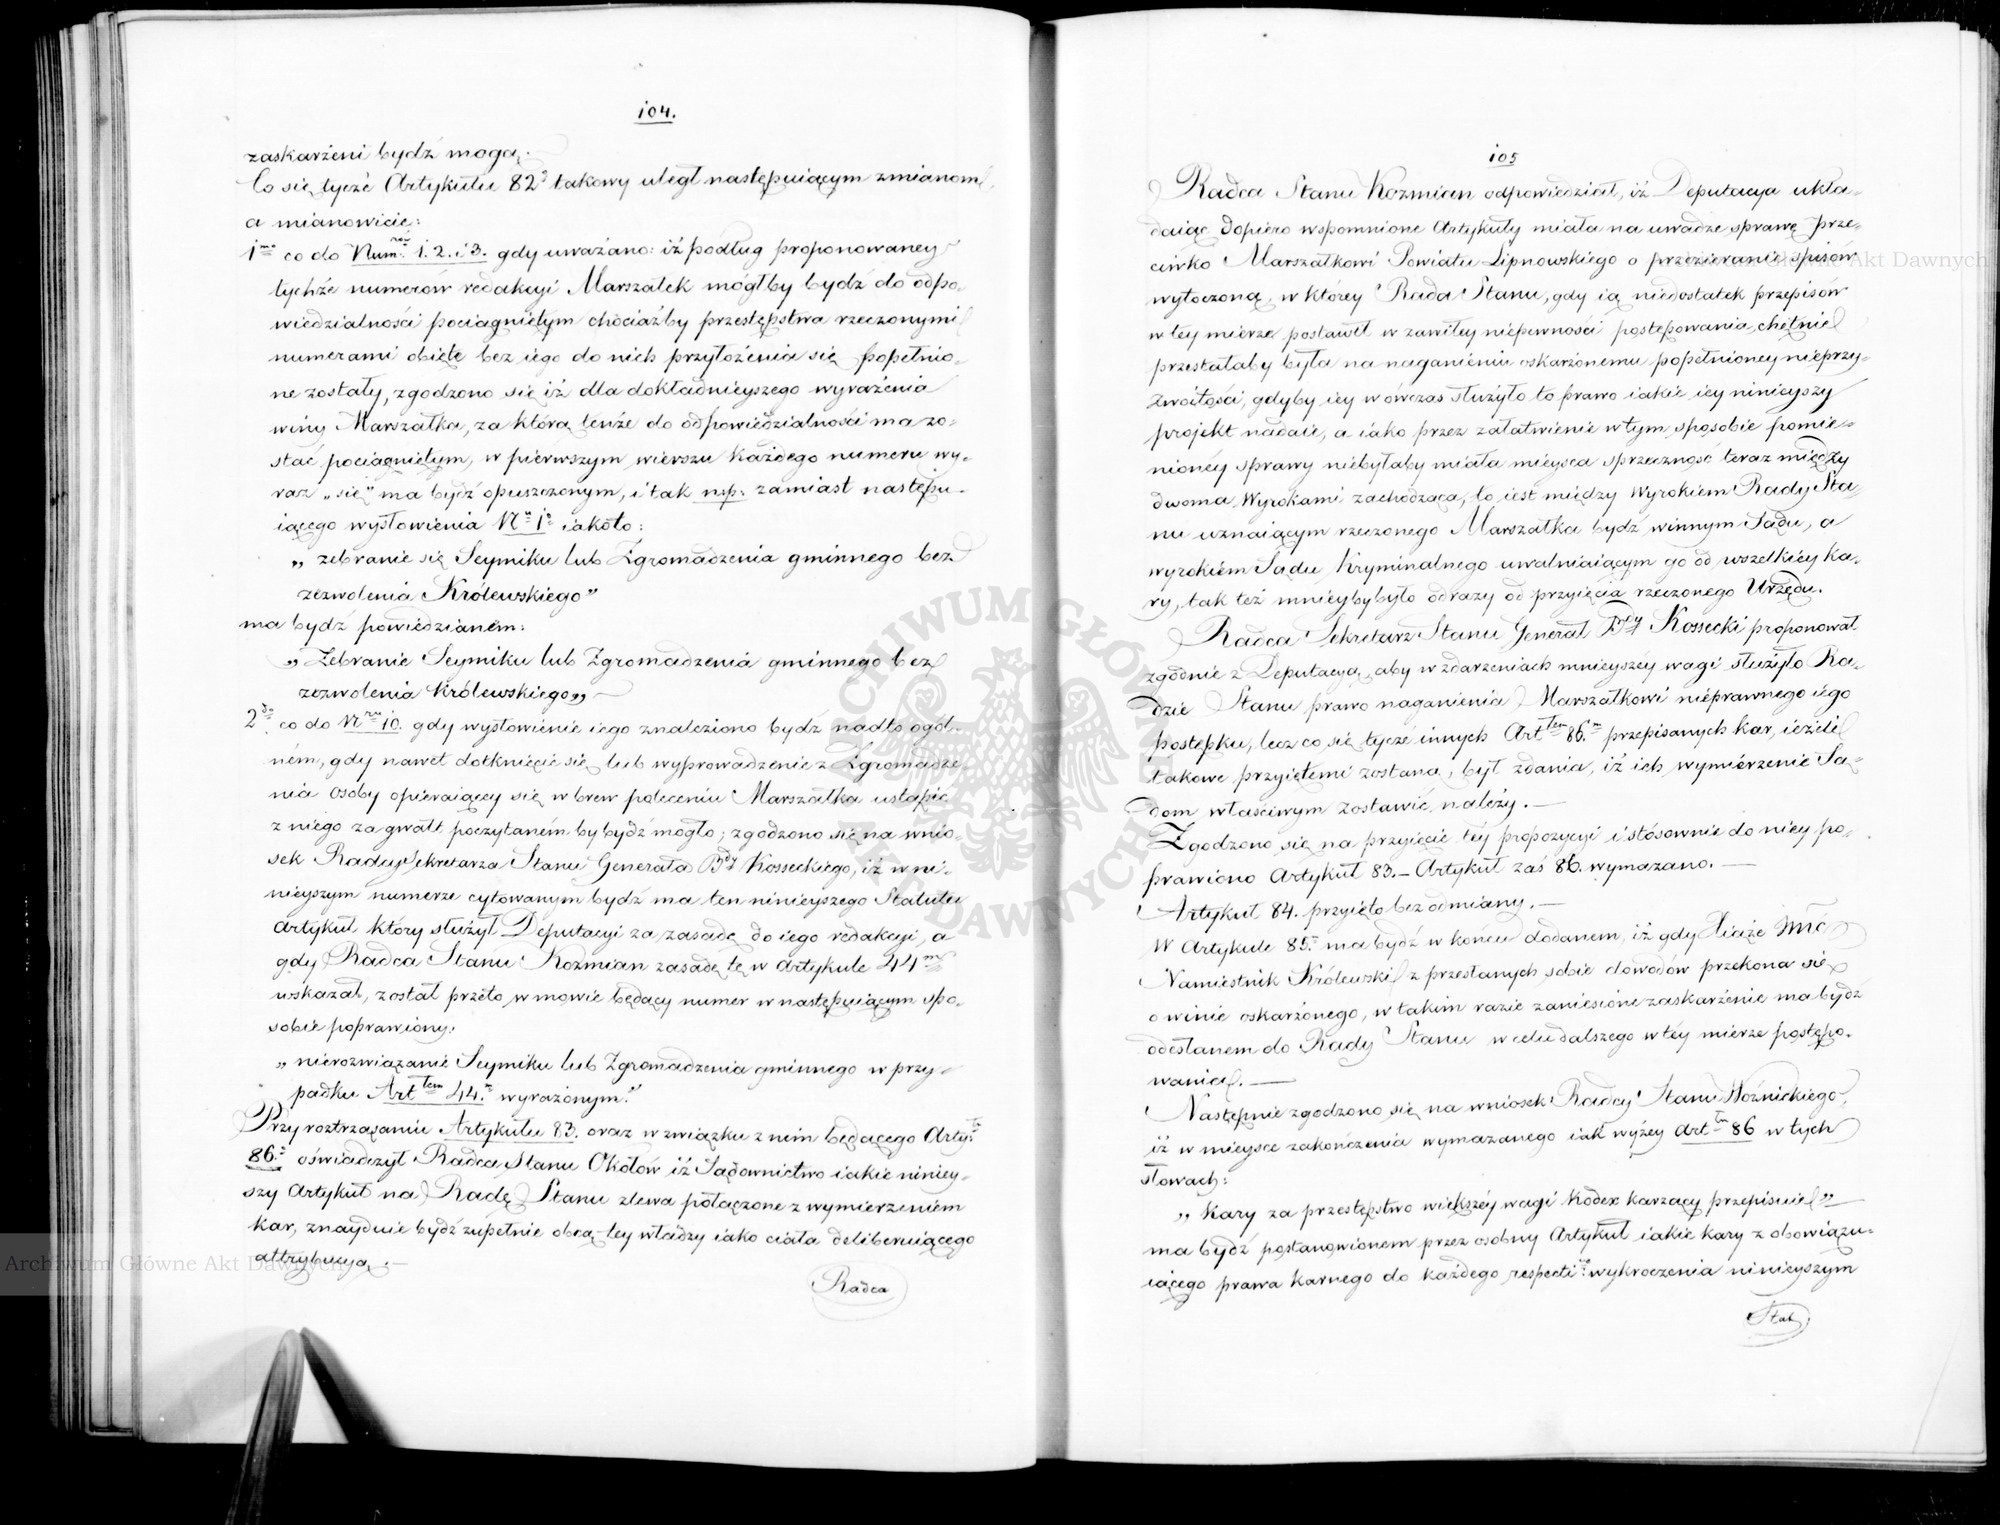 104.
zaskarżeni bydź mogą.
Co się tycze Artykułu 82º takowy uległ następuiącym zmianom,
a mianowicie:
1mo co do Num:rów 1. 2. i 3. gdy uważano: iż podług proponowaney
tychże numerów redakcyi Marszałek mógłby bydź do odpo-
wiedzialności pociągniętym chociażby przestępstwa rzeczonymi
numerami obięte bez iego do nich przyłożenia się popełnio-
ne zostały, zgodzono się iż dla dokładnieyszego wyrażenia
winy Marszałka, za którą tenże do odpowiedzialności ma zo-
stać pociągniętym, w pierwszym wierszu każdego numeru wy-
raz „się” ma bydź opuszczonym, i tak nsp: zamiast następu-
iącego wysłowienia Nu 1º iakoto:
„ zebranie się Seymiku lub Zgromadzenia gminnego bez
zezwolenia Królewskiego”
ma bydź powiedzianem:
„ Zebranie Seymiku lub Zgromadzenia gminnego bez
zezwolenia Królewskiego„ —
2do co do Nru 10. gdy wysłowienie iego znaleziono bydź nadto ogól-
ném, gdy nawet dotknięcie się lub wyprowadzenie z Zgromadze-
nia osoby opieraiącey się wbrew poleceniu Marszałka ustąpić
z niego za gwałt poczytaném by bydź mogło; zgodzono się na wnio-
sek Radcy Sekretarza Stanu Generała Bdy Kosseckiego, iż w ni-
nieyszym numerze cytowanym bydź ma ten ninieyszego Statutu
Artykuł który służył Deputacyi za zasadę do iego redakcyi, a
gdy Radca Stanu Koźmian zasadę tę w Artykule 44m
wskazał, został przeto w mowie będący numer w następuiącym spo-
sobie poprawiony:
„ nierozwiązanie Seymiku lub Zgromadzenia gminnego w przy-
padku Arttem 44.m wyrażonym.”
Przy roztrząsaniu Artykułu 83. oraz w związku z nim będącego Arty:łu
86.º oświadczył Radca Stanu Okołów iż Sądownictwo iakie niniey-
szy Artykuł na Radę Stanu zlewa połączone z wymierzeniem
kar, znayduie bydź zupełnie obcą tey władzy iako ciała deliberuiącego
attrybucyą. —
Radca
105
Radca Stanu Koźmian odpowiedział, iż Deputacya ukła-
daiąc dopiero wspomnione Artykuły miała na uwadze sprawę prze-
ciwko Marszałkowi Powiatu Lipnowskiego o przezieranie spisów
wytoczoną, w którey Rada Stanu, gdy ią niedostatek przepisów
w tey mierze postawił w zawiłey niepewności postępowania, chętnie
przestałaby była na naganieniu oskarżonemu popełnioney nieprzy-
zwoitości, gdyby iey wówczas służyło to prawo iakie iey ninieyszy
projekt nadaie, a iako przez załatwienie w tym sposobie pomie-
nioney sprawy niebyłaby miała mieysca sprzeczność teraz między
dwoma Wyrokami zachodząca, to iest między Wyrokiem Rady Sta-
nu uznaiącym rzeczonego Marszałka bydź winnym Sądu, a
wyrokiem Sądu Kryminalnego uwalniaiącym go od wszelkiéy ka-
ry, tak też mniey by było odrazy od przyięcia rzeczonego Urzędu.
Radca Sekretarz Stanu Generał Bdy Kossecki proponował
zgodnie z Deputacyą, aby w zdarzeniach mnieyszéy wagi służyło Ra-
dzie Stanu prawo naganienia Marszałkowi nieprawnego iego
postępku, lecz co się tycze innych Arttem 86.m przepisanych kar, ieżeli
takowe przyiętemi zostaną, był zdania, iż ich wymierzenie Są-
dom właściwym zostawić należy. —
Zgodzono się na przyięcie tey propozycyi i stósownie do niey po-
prawiono Artykuł 83. — Artykuł zaś 86. wymazano. —
Artykuł 84. przyięto bez odmiany. —
W Artykule 85.m ma bydź w końcu dodanem, iż gdy Xiąże JMć
Namiestnik Królewski z przesłanych sobie dowodów przekona się
o winie oskarżonego, w takim razie zaniesione zaskarżenie ma bydź
odesłanem do Rady Stanu w celu dalszego w tey mierze postępo-
wania. —
Następnie zgodzono się na wniosek Radcy Stanu Woźnickiego,
iż w mieysce zakończenia wymazanego iak wyżey Artłu 86 w tych
słowach:
„ Kary za przestępstwo większéy wagi Kodex karzący przepisuie” —
ma bydź postanowionem przez osobny Artykuł iakie kary z obowiązu-
iącego prawa karnego do każdego respective wykroczenia ninieyszym
Stat.
Archiwum Główne Akt Dawnych
Archiwum Główne Akt Dawnych
ARCHIWUM GŁÓWNE AKT DAWNYCH